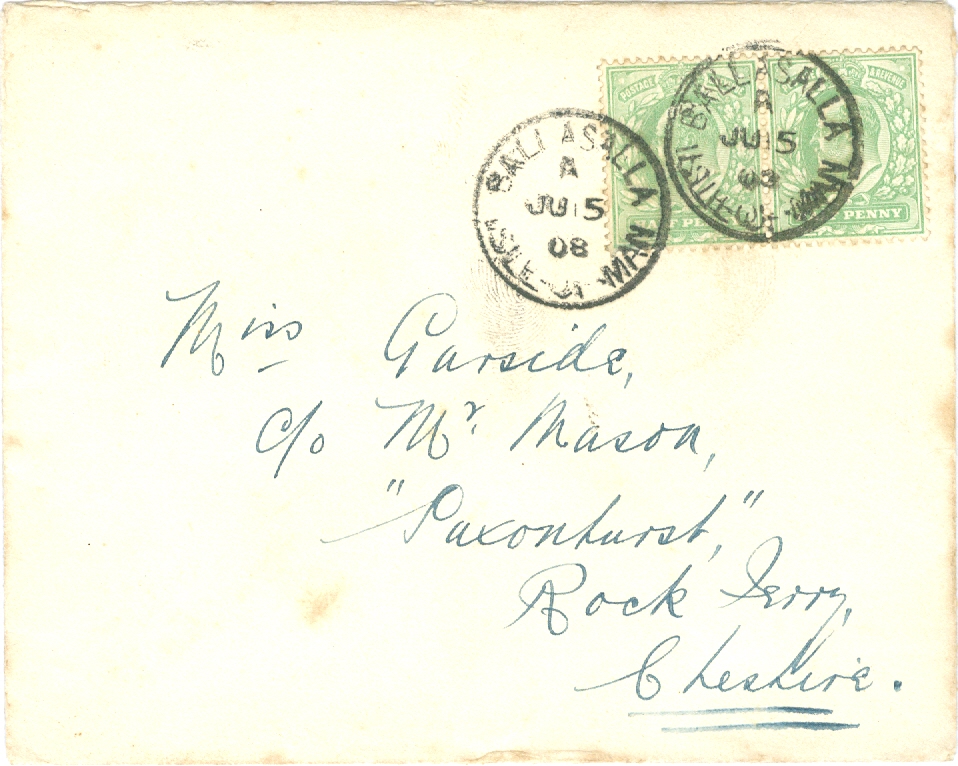 POSTAGE & REVENUE
HALF PENNY PENNY
BALLASALLA
A
JU 15
08
ISLE-OF-MAN
BALLASALLA
A
JU 15
08
ISLE-OF-MAN
Miss Garside,
c/o Mr. Mason,
"Paxonhurst,"
Rock Ferry,
Cheshire.